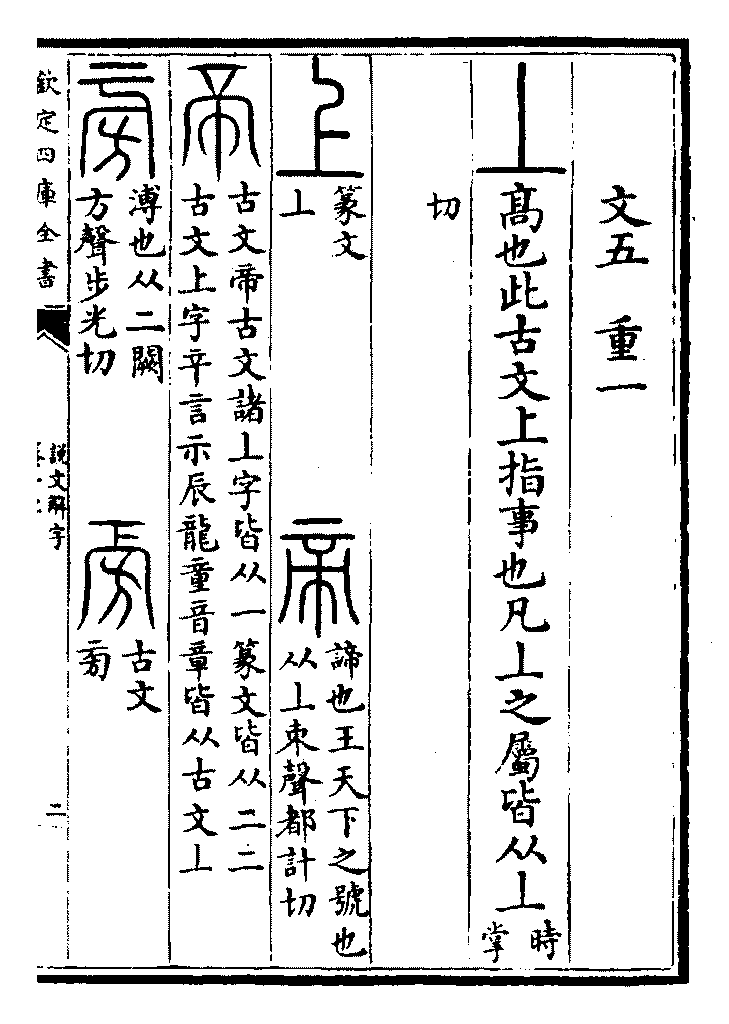 文五　重一
丄高也此古文上指事也凡丄之屬皆从丄時掌
切
上篆文丄
帝諦也王天下之號也从丄朿聲都計切
帝古文帝古文諸丄字皆从一篆文皆从二二古文上字䇂言示辰龍童音章皆从古文丄
㫄溥也从二闕方聲步光切
㫄古文㫄
欽定四庫全書
說文解字
二